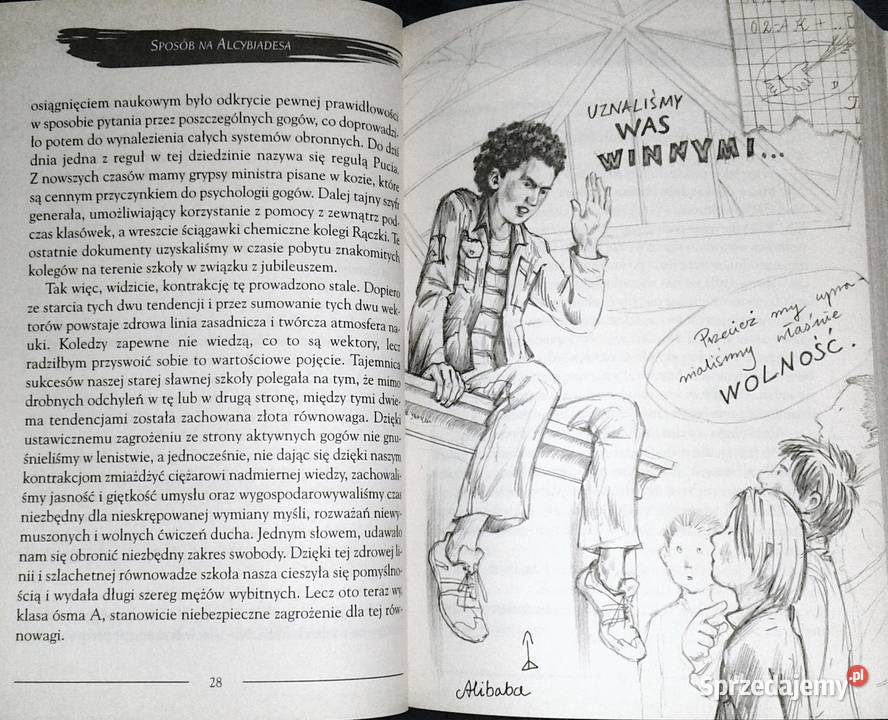 SPOSÓB NA ALCYBIADESA
osiągnięciem naukowym było odkrycie pewnej prawidłowości
w sposobie pytania przez poszczególnych gogów, co doprowadzi-
ło potem do wynalezienia całych systemów obronnych. Do dziś
dnia jedna z reguł w tej dziedzinie nazywa się regułą Pucia.
Z nowszych czasów mamy grypsy ministra pisane w kozie, które
są cennym przyczynkiem do psychologii gogów. Dalej tajny szyfr
generała, umożliwiający korzystanie z pomocy z zewnątrz pod-
czas klasówek, a wreszcie ściągawki chemiczne kolegi Rączki. Te
ostatnie dokumenty uzyskaliśmy w czasie pobytu znakomitych
kolegów na terenie szkoły w związku z jubileuszem.
Tak więc, widzicie, kontrakcję tę prowadzono stale. Dopiero
ze starcia tych dwu tendencji i przez sumowanie tych dwu wek-
torów powstaje zdrowa linia zasadnicza i twórcza atmosfera na-
uki. Koledzy zapewne nie wiedzą, co to są wektory, lecz
radziłbym przyswoić sobie to wartościowe pojęcie. Tajemnica
sukcesów naszej starej sławnej szkoły polegała na tym, że mimo
drobnych odchyleń w tę lub w drugą stronę, między tymi dwie-
ma tendencjami została zachowana złota równowaga. Dzięki
ustawicznemu zagrożeniu ze strony aktywnych gogów nie gnu-
śnieliśmy w lenistwie, a jednocześnie, nie dając się dzięki naszym
kontrakcjom zmiażdżyć ciężarowi nadmiernej wiedzy, zachowali-
śmy jasność i giętkość umysłu oraz wygospodarowywaliśmy czas
niezbędny dla nieskrępowanej wymiany myśli, rozważań niewy-
muszonych i wolnych ćwiczeń ducha. Jednym słowem, udawało
nam się obronić niezbędny zakres swobody. Dzięki tej zdrowej li-
nii i szlachetnej równowadze szkoła nasza cieszyła się pomyślno-
ścią i wydała długi szereg mężów wybitnych. Lecz oto teraz wy,
klasa ósma A, stanowicie niebezpieczne zagrożenie dla tej rów-
nowagi.
28
UZNALIŚMY
WAS
WINNYMI...
Przecież my
maliśmy właśnie
WOLNOŚĆ.
Alibaba
Sprzedajemy.pl